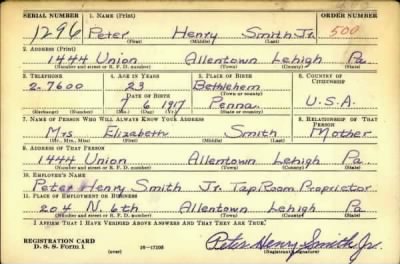 SERIAL NUMBER 1. NAME (Print) ORDER NUMBER
1296 Peter Henry Smith Jr. 500
(First) (Middle) (Last)
2. ADDRESS (Print)
1444 Union Allentown Lehigh Pa.
(Number and street or R. F. D. number) (Town) (County) (State)
3. TELEPHONE 4. AGE IN YEARS 5. PLACE OF BIRTH 6. COUNTRY OF CITIZENSHIP
2-7600 23 Bethlehem
DATE OF BIRTH (Town or county)
7 6 1917 Penna. U.S.A.
(Exchange) (Number) (Mo.) (Day) (Yr.) (State or country)
7. NAME OF PERSON WHO WILL ALWAYS KNOW YOUR ADDRESS 8. RELATIONSHIP OF THAT PERSON
Mrs Elizabeth Smith Mother
(Mr., Mrs., Miss) (First) (Middle) (Last)
9. ADDRESS OF THAT PERSON
1444 Union Allentown Lehigh Pa.
(Number and street or R. F. D. number) (Town) (County) (State)
10. EMPLOYER'S NAME
Peter Henry Smith Jr. Tap Room Proprietor
11. PLACE OF EMPLOYMENT OR BUSINESS
204 N. 6th Allentown Lehigh Pa.
(Number and street or R. F. D. number) (Town) (County) (State)
I AFFIRM THAT I HAVE VERIFIED ABOVE ANSWERS AND THAT THEY ARE TRUE.
REGISTRATION CARD
D. S. S. Form 1 (over) 16-17105 Peter Henry Smith Jr.